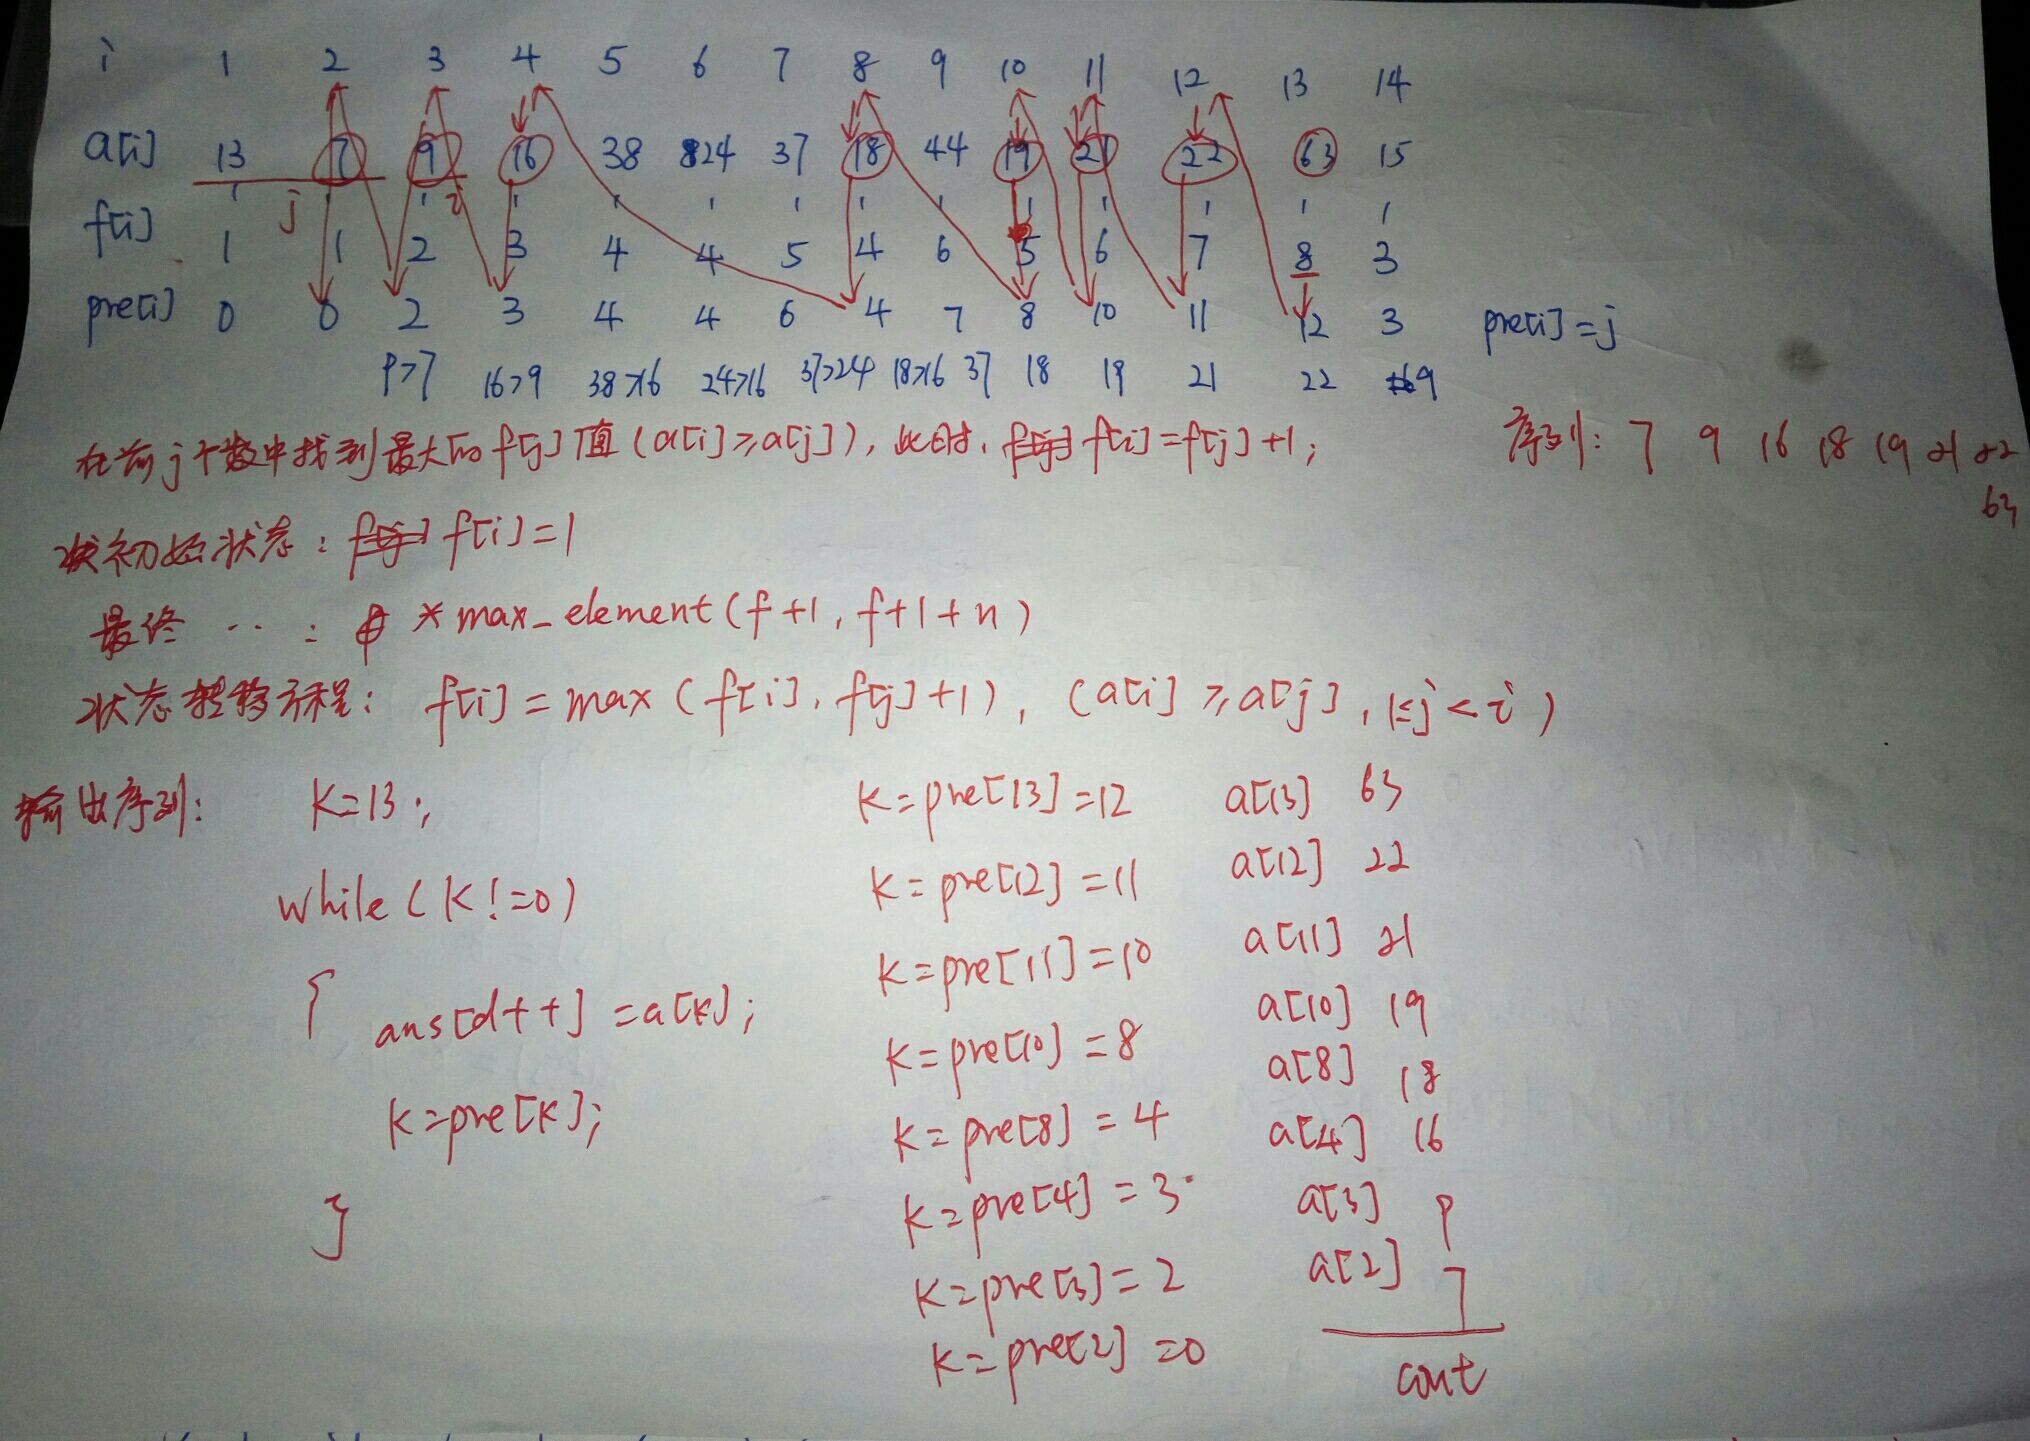 i 1 2 3 4 5 6 7 8 9 10 11 12 13 14
a[i] 13 7 9 16 38 24 37 18 44 19 21 22 63 15
f[i] 1 1 1 1 1 1 1 1 1 1 1 1
j i
1 1 2 3 4 4 5 4 6 5 6 7 8 3
pre[i] 0 0 2 3 4 4 6 4 7 8 10 11 12 3 pre[i]=j
9>7 16>9 38>16 24>16 37>24 18>16 37 18 19 21 22 9
在前j个数中找到最大的f[j]值(a[i]≥a[j]), 此时, f[i]=f[j]+1;
序列: 7 9 16 18 19 21 22
63
初始状态: f[i]=1
最终 ‥ : *max_element(f+1, f+1+n)
状态转移方程: f[i]=max(f[i], f[j]+1), (a[i]≥a[j], 1≤j<i)
输出序列: K=13; K=pre[13]=12 a[13] 63
while(K!=0) K=pre[12]=11 a[12] 22
{ K=pre[11]=10 a[11] 21
ans[d++]=a[K]; K=pre[10]=8 a[10] 19
a[8] 18
K=pre[K]; K=pre[8]=4 a[4] 16
} K=pre[4]=3 a[3] 9
K=pre[3]=2 a[2] 7
K=pre[2]=0 cout